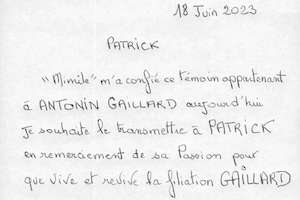 18 Juin 2023
PATRICK
"Mimile" m'a confié ce témoin appartenant
à ANTONIN GAILLARD aujourd'hui
Je souhaite le transmettre à PATRICK
en remerciement de sa Passion pour
que vive et revive la filiation GAILLARD